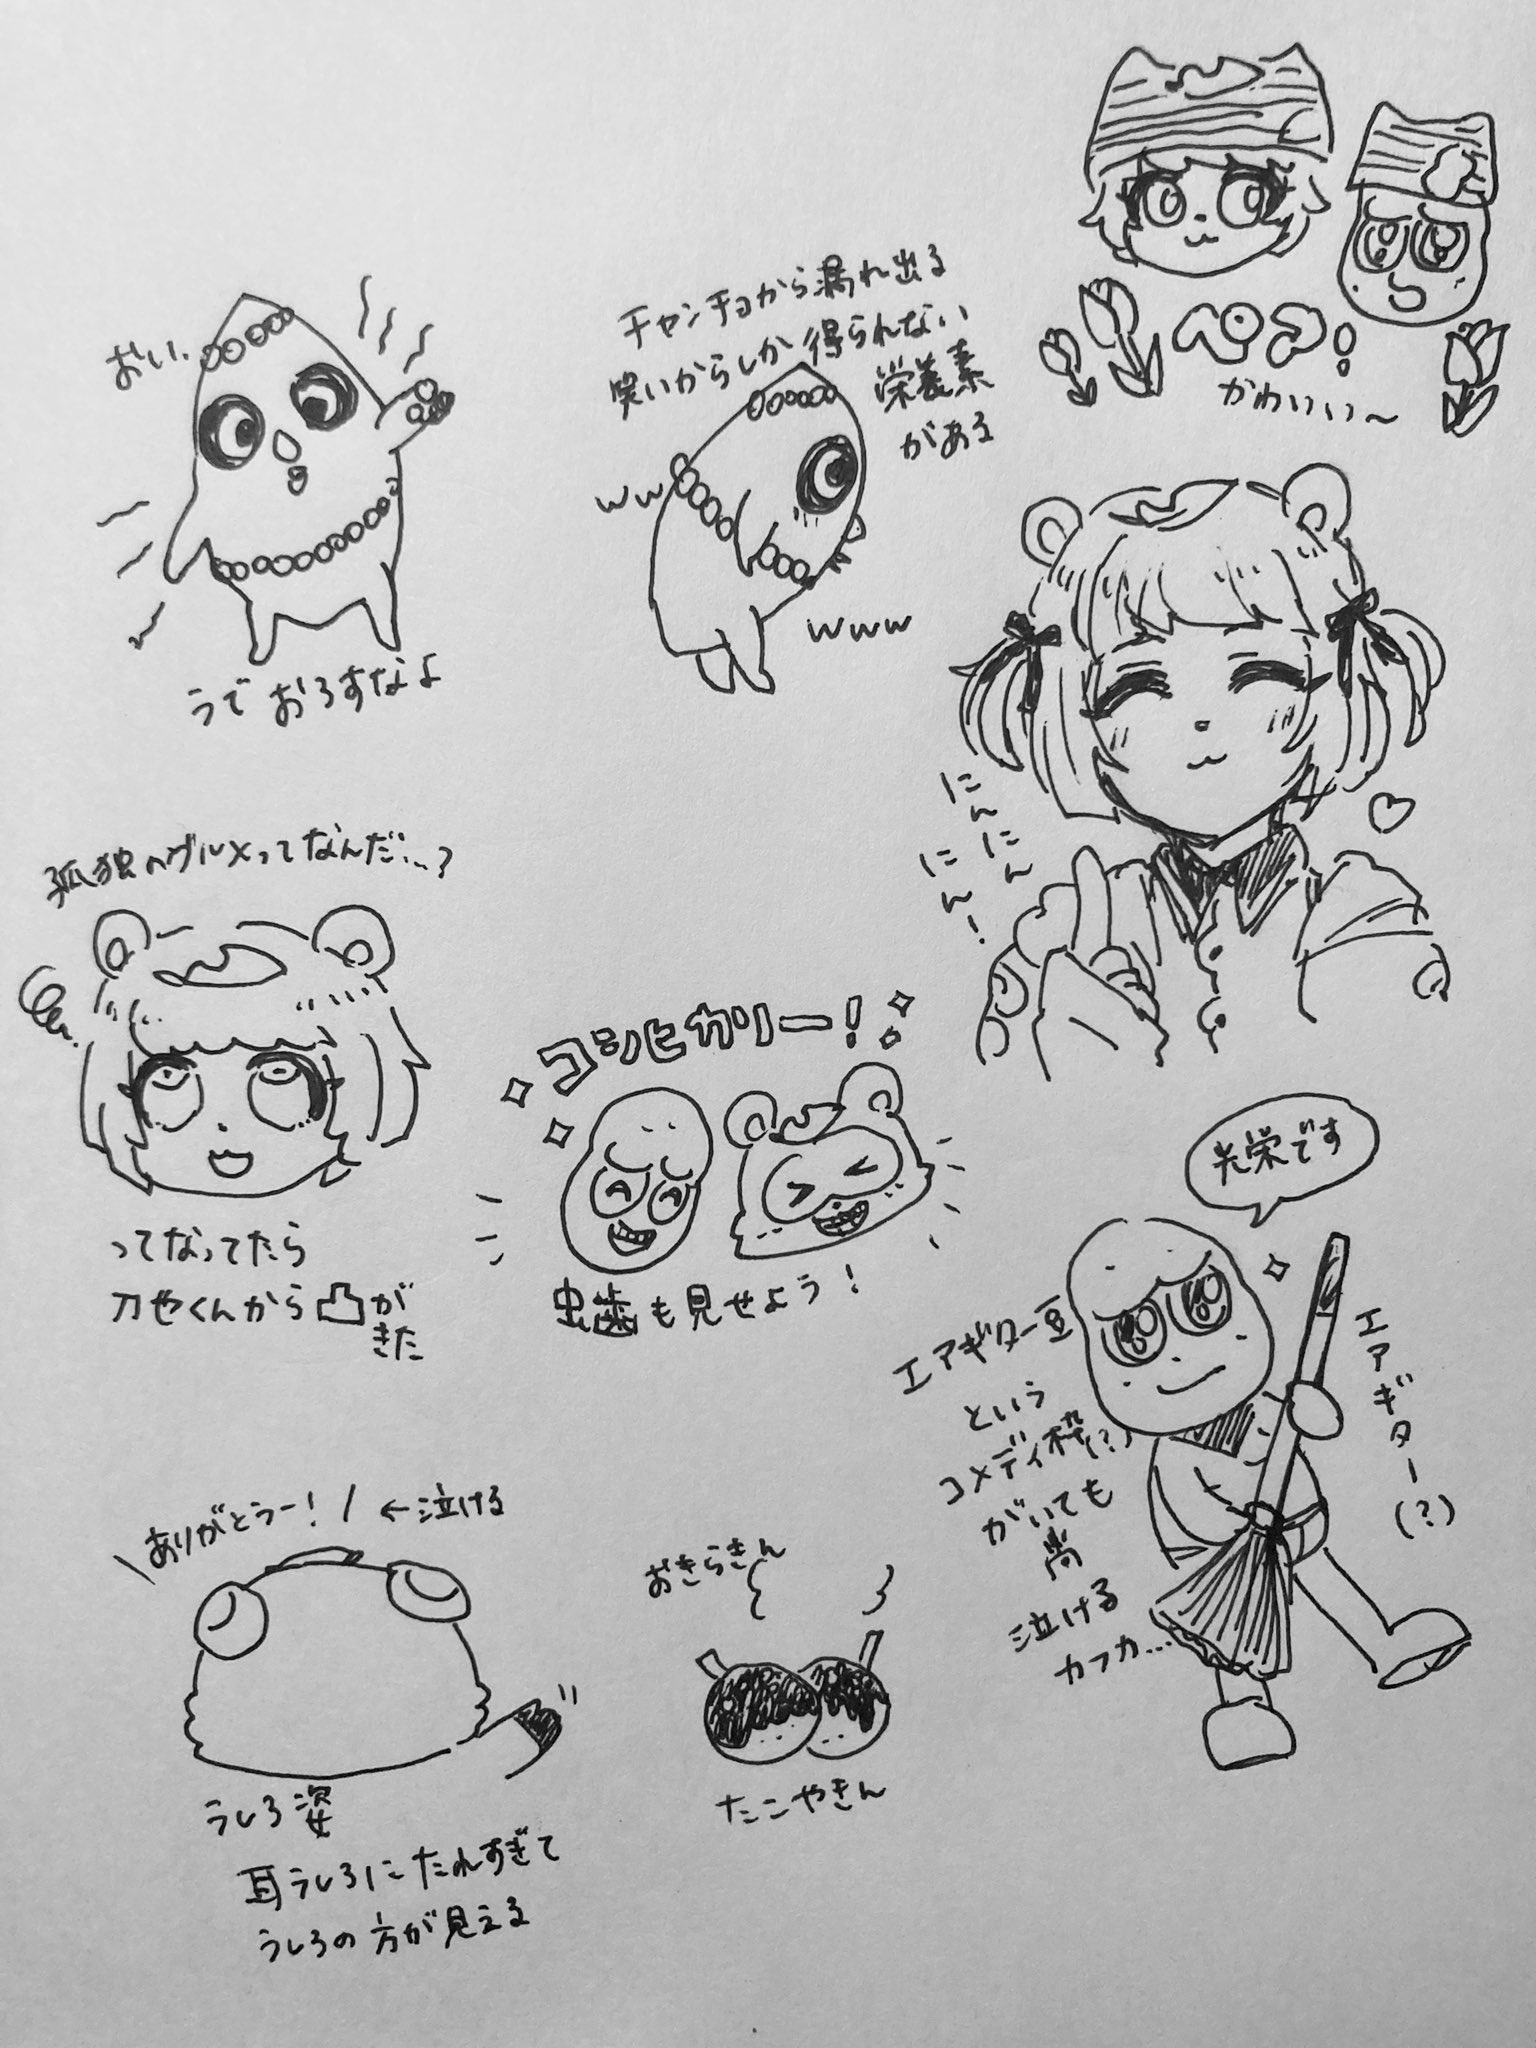 おい、
うでおろすなよ
チャンチョから漏れ出る
笑いからしか得られない
栄養素
がある
ww
www
かわいい〜
にん
にん
にん!
孤独のグルメってなんだ…?
ってなってたら
刀也くんから凸が
きた
コシヒカリー!
虫歯も見せよう!
光栄です
エアギター(?)
エアギター豆
という
コメディ枠(?)
がいても
尚
泣ける
カフカ…
\ありがとうー!/ ←泣ける
うしろ姿
耳うしろにたれすぎて
うしろの方が見える
おきらきん
たこやきん